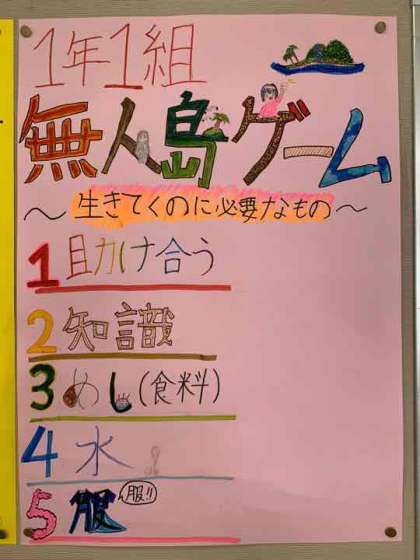 1年1組
無人島ゲーム
～生きてくのに必要なもの～
1 助け合う
2 知識
3 めし(食料)
4 水
5 服 服!!